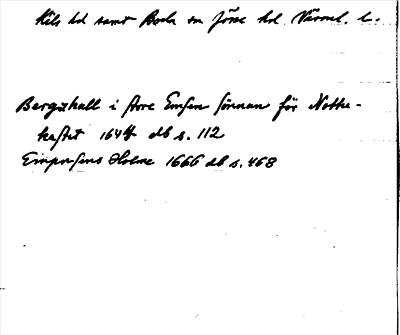 Kils hd samt Boda sn Jösse hd Värml. l.
Bergzhall i store Emsen sönnan för Notte-
kastet 1644 db s. 112
Holme 1666 db s. 468